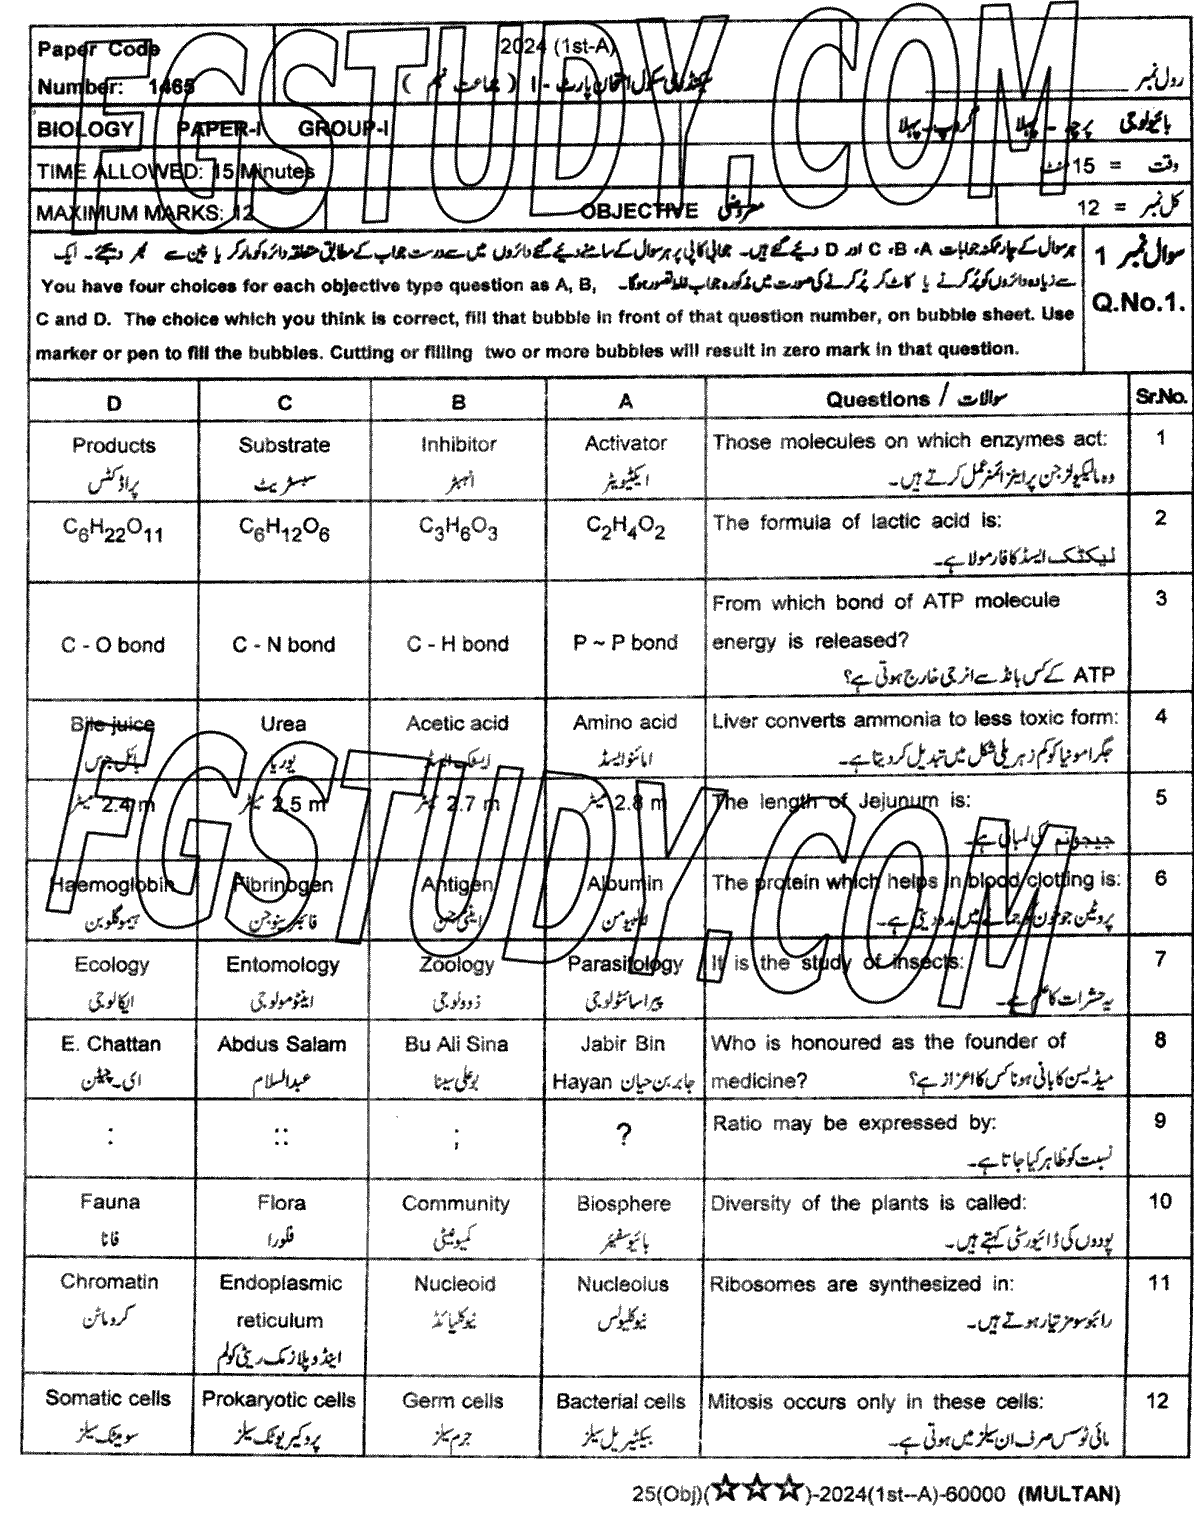 Paper Code
2024 (1st-A)
رول نمبر
Number: 1465
سیکنڈری سکول امتحان پارٹ - I ( جماعت نہم )
BIOLOGY PAPER-I GROUP-I
بائیولوجی پرچہ - پہلا گروپ - پہلا
TIME ALLOWED: 15 Minutes
وقت = 15 منٹ
MAXIMUM MARKS: 12
OBJECTIVE معروضی
کل نمبر = 12
سوال نمبر 1
Q.No.1.
ہر سوال کے چار ممکنہ جوابات A ،B ،C اور D دیے گئے ہیں۔ جوابی کاپی پر ہر سوال کے سامنے دیے گئے دائروں میں سے درست جواب کے مطابق متعلقہ دائرہ کو مارکر یا پین سے بھر دیجئے۔ ایک
سے زیادہ دائروں کو پُر کرنے یا کاٹ کر پُر کرنے کی صورت میں مذکورہ جواب غلط تصور ہوگا۔
You have four choices for each objective type question as A, B,
C and D. The choice which you think is correct, fill that bubble in front of that question number, on bubble sheet. Use
marker or pen to fill the bubbles. Cutting or filling two or more bubbles will result in zero mark in that question.
D C B A Questions / سوالات Sr.No.
Products Substrate Inhibitor Activator Those molecules on which enzymes act: 1
پراڈکٹس سبسٹریٹ انہبٹر ایکٹیویٹر وہ مالیکیولز جن پر اینزائمز عمل کرتے ہیں۔
C6H22O11 C6H12O6 C3H6O3 C2H4O2 The formula of lactic acid is: 2
لیکٹک ایسڈ کا فارمولا ہے۔
From which bond of ATP molecule 3
C - O bond C - N bond C - H bond P ~ P bond energy is released?
ATP کے کس بانڈ سے انرجی خارج ہوتی ہے؟
Bile juice Urea Acetic acid Amino acid Liver converts ammonia to less toxic form: 4
بائل جوس یوریا ایسٹک ایسڈ امائنو ایسڈ جگر امونیا کو کم زہریلی شکل میں تبدیل کر دیتا ہے۔
2.4 m میٹر 2.5 m میٹر 2.7 m میٹر 2.8 m میٹر The length of Jejunum is: 5
جیجونم کی لمبائی ہے۔
Haemoglobin Fibrinogen Antigen Albumin The protein which helps in blood clotting is: 6
ہیموگلوبن فائبرینوجن اینٹی جن البیومن پروٹین جو خون کو جمانے میں مدد دیتی ہے۔
Ecology Entomology Zoology Parasitology It is the study of insects: 7
ایکالوجی اینٹومولوجی زوولوجی پیراسائٹولوجی یہ حشرات کا علم ہے۔
E. Chattan Abdus Salam Bu Ali Sina Jabir Bin Who is honoured as the founder of 8
ای۔چیٹن عبدالسلام بوعلی سینا Hayan جابر بن حیان medicine? میڈیسن کا بانی ہونا کس کا اعزاز ہے؟
: :: ; ? Ratio may be expressed by: 9
نسبت کو ظاہر کیا جاتا ہے۔
Fauna Flora Community Biosphere Diversity of the plants is called: 10
فانا فلورا کمیونٹی بائیوسفیئر پودوں کی ڈائیورسٹی کہتے ہیں۔
Chromatin Endoplasmic Nucleoid Nucleolus Ribosomes are synthesized in: 11
کروماٹن reticulum نیوکلیائڈ نیوکلیولس رائبوسومز تیار ہوتے ہیں۔
اینڈوپلازمک ریٹی کولم
Somatic cells Prokaryotic cells Germ cells Bacterial cells Mitosis occurs only in these cells: 12
سومیٹک سیلز پروکیریوٹک سیلز جرم سیلز بیکٹیریل سیلز مائی ٹوسس صرف ان سیلز میں ہوتی ہے۔
25(Obj)(☆☆☆)-2024(1st--A)-60000 (MULTAN)
FGSTUDY.COM
FGSTUDY.COM